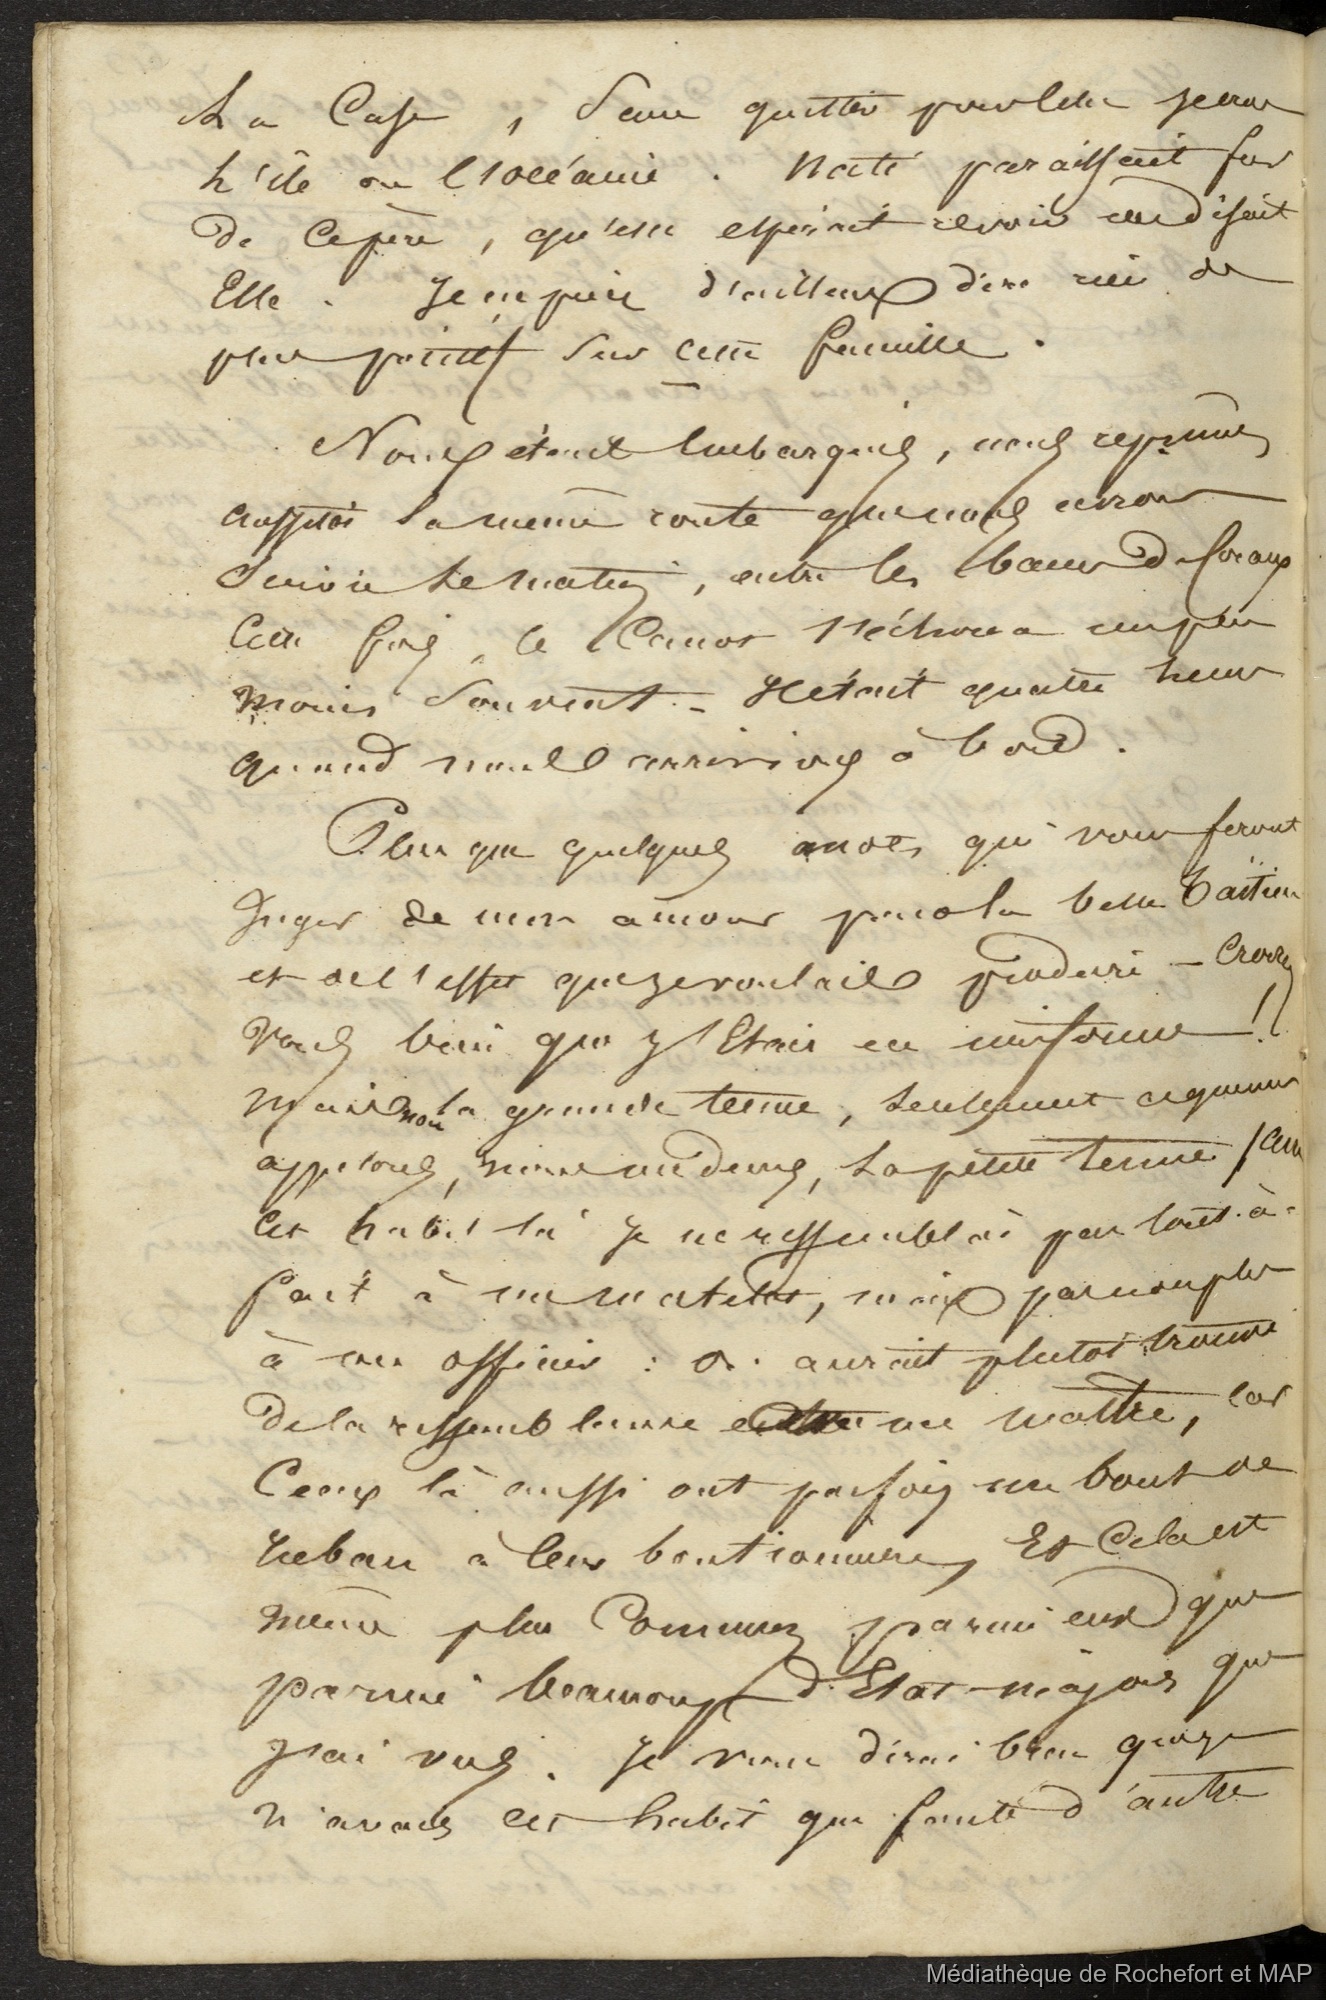 La Case, sans quitter pour cela
l'île ou l'océanie. Naté paraissait
de ce père, qu'elle espérait revoir me disait
Elle. Je ne puis d'ailleurs dire rien de
plus positif sur cette famille.
Nous étant embarqués, nous reprîmes
aussitôt la même route que nous avions
suivie le matin, entre les bancs de Coraux
Cette fois, le Canot s'échoua un peu
moins souvent - Il était quatre heures
quand nous arrivions à bord.
Plus que quelques mots qui vous feront
Juger de mon amour pour la belle taïtienne
et de l'effet que je voulais produire - Croyez
vous bien que j'Etais en uniforme !!
Mais non la grande tenue, seulement ce que nous
appelons, nous mêmes, la petite tenue /
Cet habit là Je ne ressemblais pas tout-à-
fait à un matelot, mais pas non plus
à un officier : on aurait plutôt trouvé
de la ressemblance un maître, Car
Ceux là aussi ont parfois un bout de
ruban à leur boutonnière, Et Cela est
même plus Commun parmi eux que
parmi beaucoup d'Etat-majors que
j'ai vus. Je vous dirai bien que je
n'avais cet habit que faute d'autre
Médiathèque de Rochefort et MAP